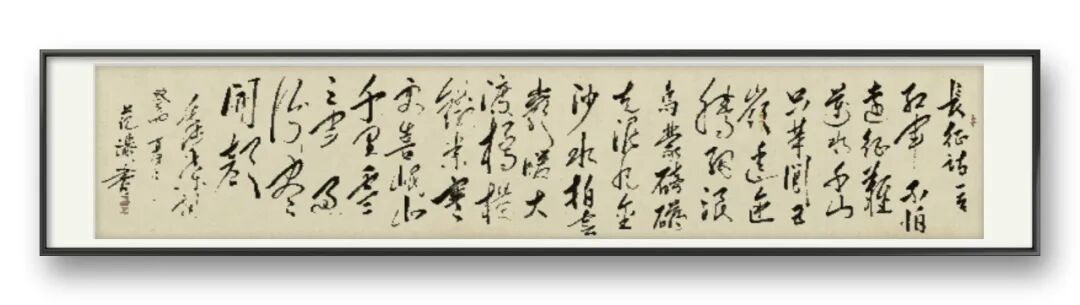 長征詩一首
紅軍不怕
遠征難
萬水千山
只等閒五
嶺逶迤
騰細浪
烏蒙磅礴
走泥丸金
沙水拍雲
崖暖大
渡橋橫
鐵索寒
更喜岷山
千里雪
三軍過
後盡
開顏
毛澤東詞
書